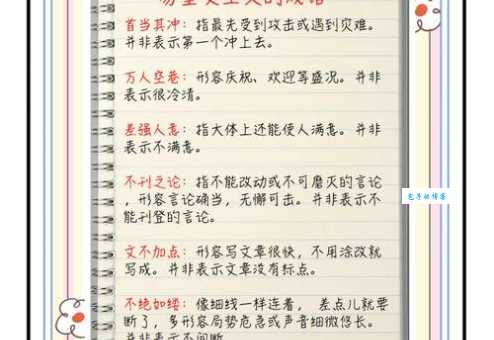 首当其冲：指最先受到攻击或遇到灾难。
并非表示第一个冲上去。
万人空巷：形容庆祝、欢迎等盛况。并非
表示很冷清。
差强人意：指大体上还能使人满意。并非
表示不满意。
不刊之论：指不能改动或不可磨灭的言论
，形容言论确当，无懈可击。并非表示不
能刊登的言论。
文不加点：形容写文章很快，不用涂改就
写成。并非表示文章没有标点。
不绝如缕：像细线一样连着， 差点儿就要
断了，多形容局势危急或声音细微悠长。
并非表示不间断